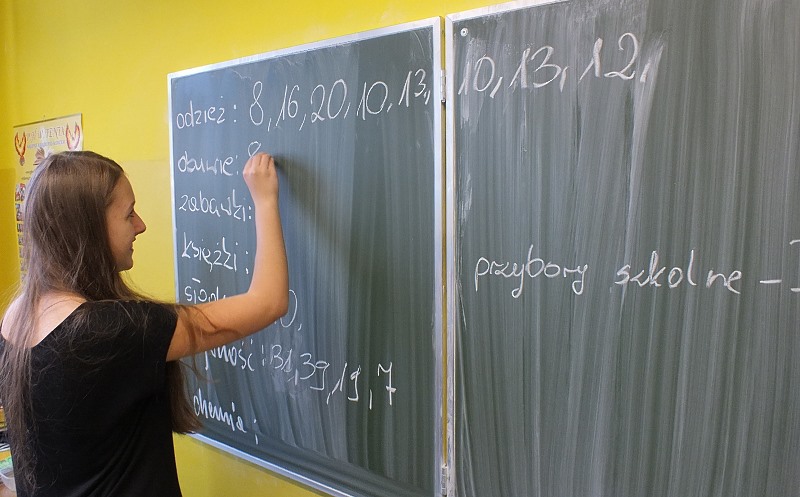 odzież: 8, 16, 20, 10, 13, 10, 13, 12,
obuwie: 8
zabawki:
książki:
0,
31, 39, 19, 7
chemia:
przybory szkolne -